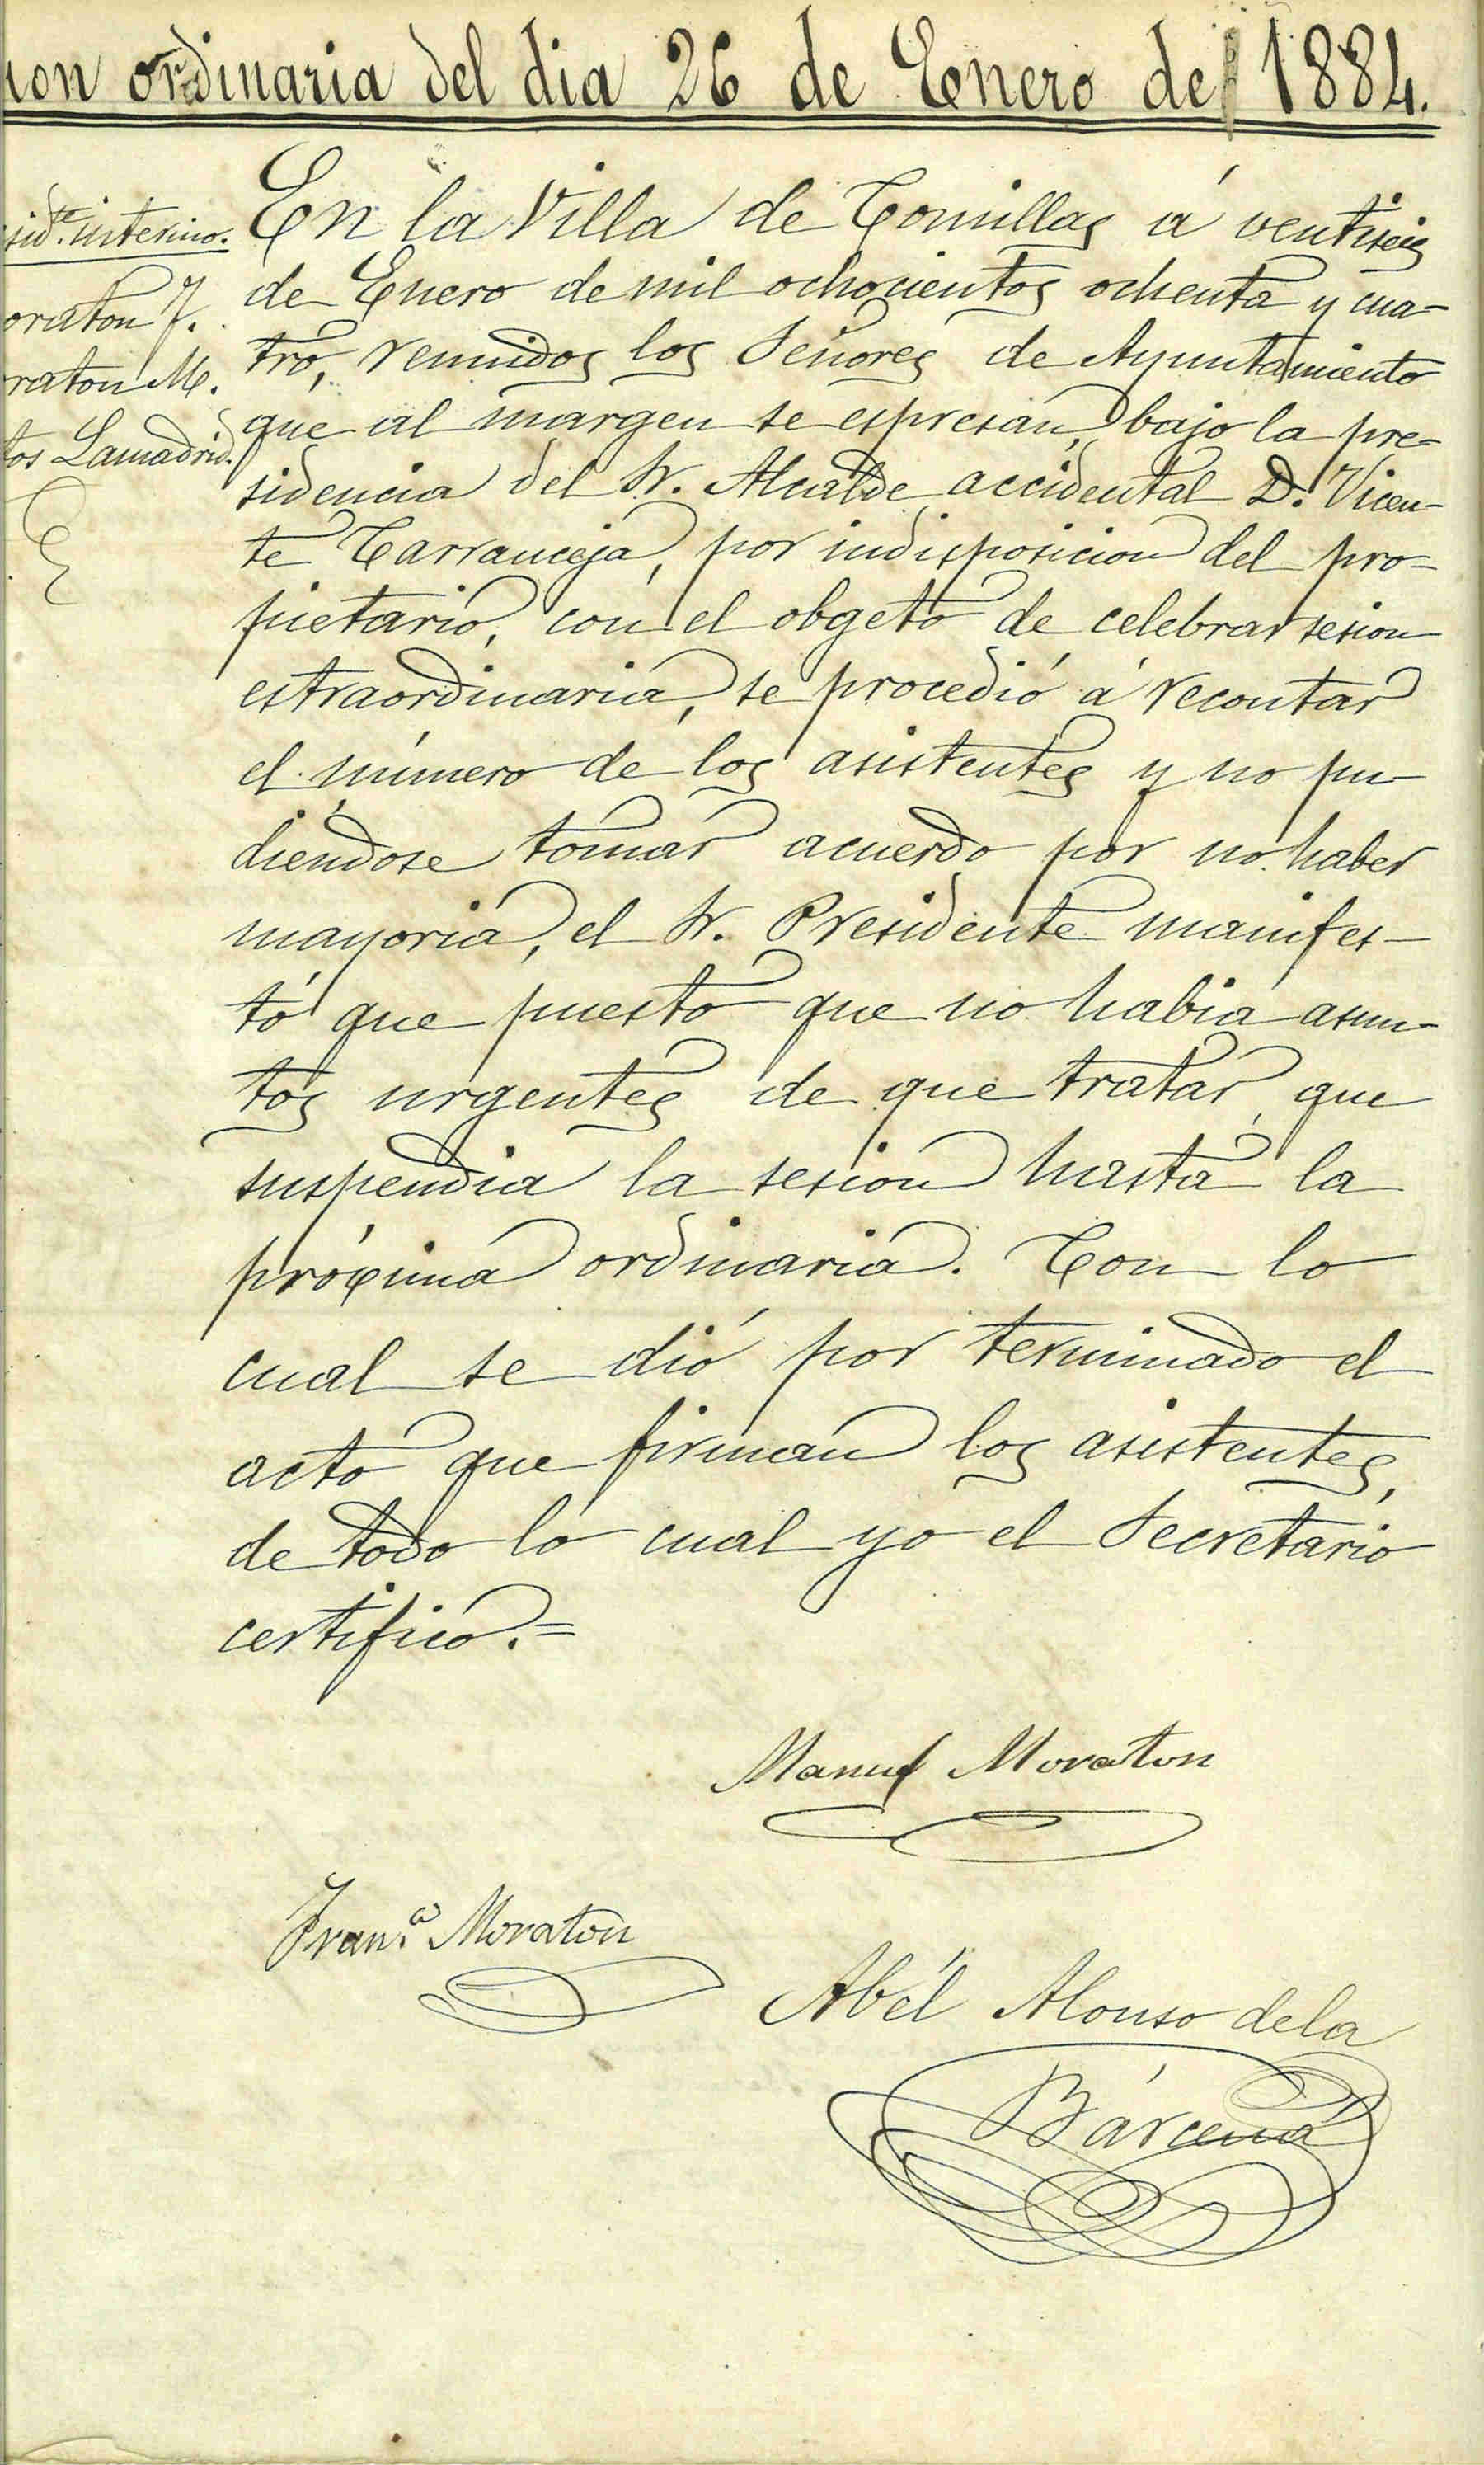 ion ordinaria del dia 26 de Enero de 1884.
sid.te interino.
oraton F.
raton M.
tos Lamadrid.
En la Villa de Comillas á ventiseis
de Enero de mil ochocientos ochenta y cua-
tro, reunidos los Señores de Ayuntamiento
que al margen se espresan, bajo la pre-
sidencia del Sr. Alcalde accidental D. Vicen-
te Carranceja, por indisposicion del pro-
pietario, con el obgeto de celebrar sesion
estraordinaria, se procedió á recontar
el número de los asistentes y no pu-
diéndose tomar acuerdo por no haber
mayoria, el Sr. Presidente manifes-
tó que puesto que no habia asun-
tos urgentes de que tratar, que
suspendia la sesion hasta la
próxima ordinaria. Con lo
cual se dió por terminado el
acto que firman los asistentes,
de todo lo cual yo el Secretario
certifico.=
Manuel Moraton
Fran.co Moraton
Abél Alonso de la
Bárcena